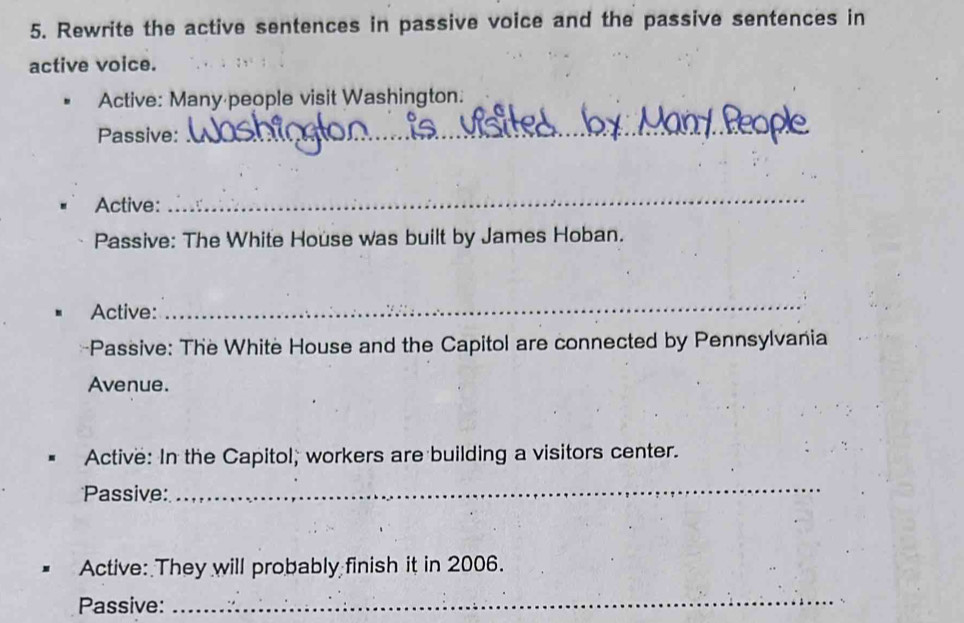 5. Rewrite the active sentences in passive voice and the passive sentences in
active voice.
▪ Active: Many people visit Washington.
Passive: Washington is visited by Many People
▪ Active: ....................
Passive: The White House was built by James Hoban.
▪ Active: ....................
Passive: The White House and the Capitol are connected by Pennsylvania
Avenue.
▪ Active: In the Capitol, workers are building a visitors center.
Passive: ....................
▪ Active: They will probably finish it in 2006.
Passive: ....................